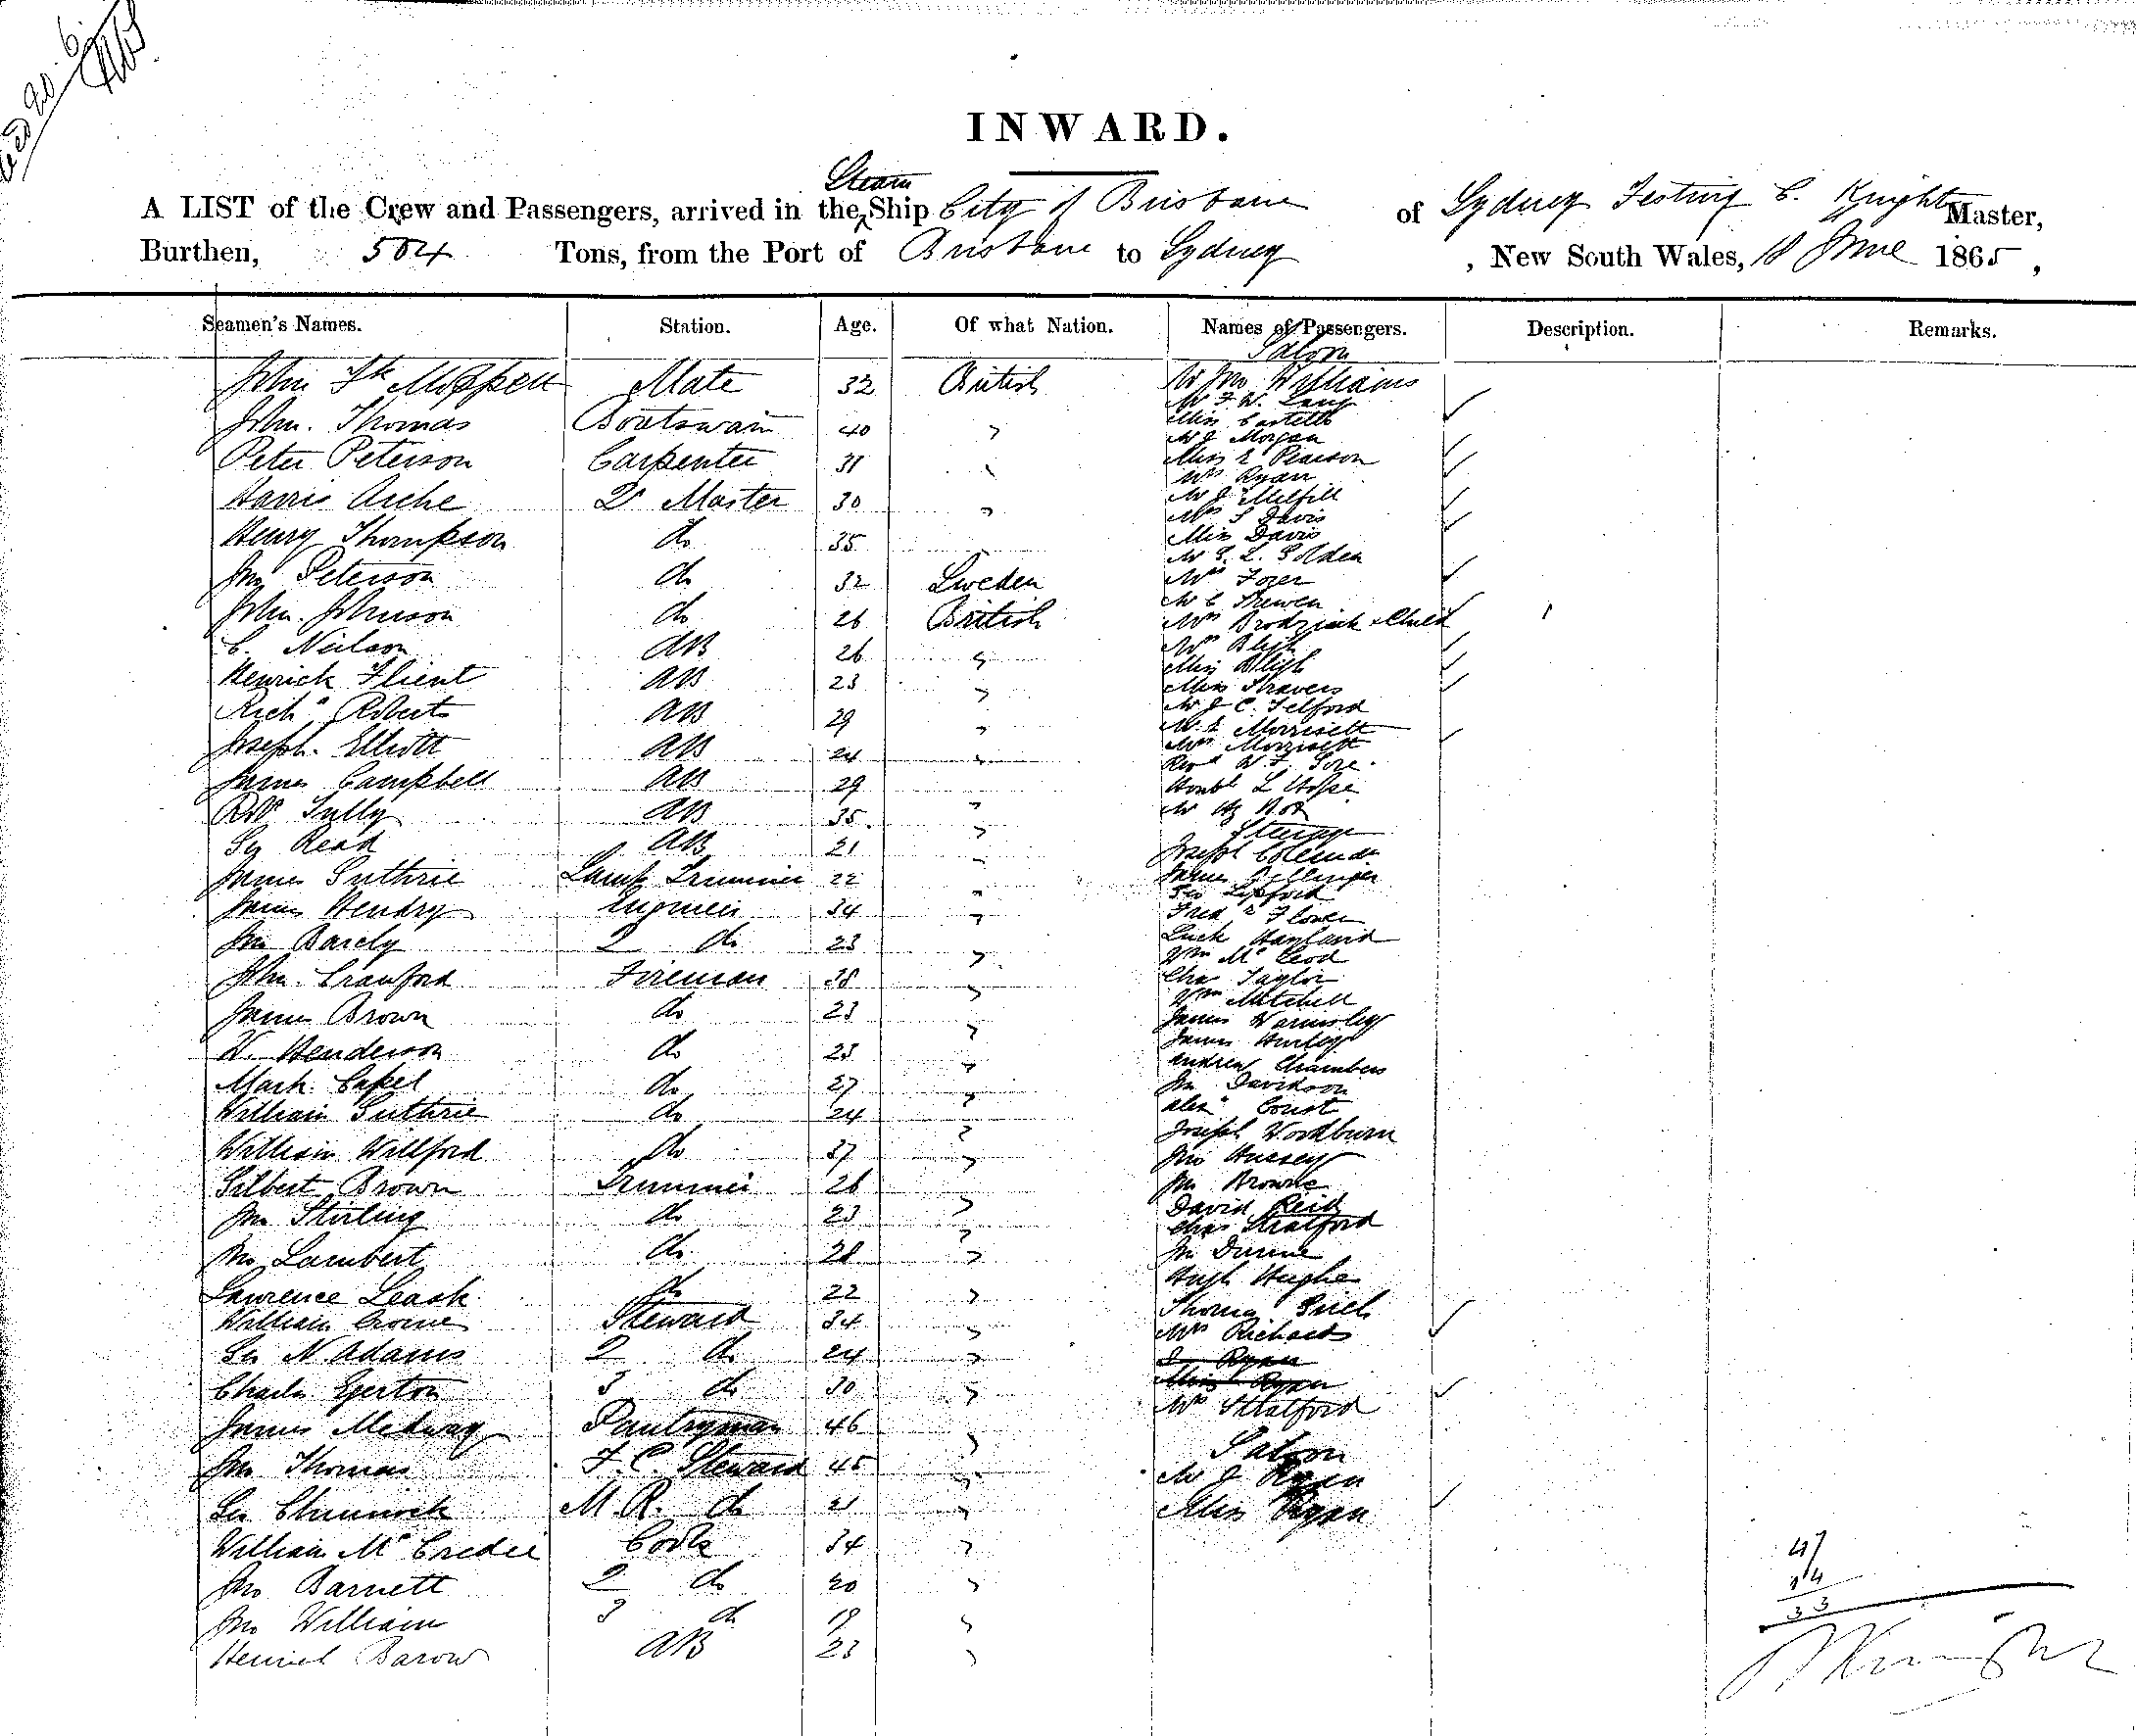 INWARD.
Steam
A LIST of the Crew and Passengers, arrived in the Ship City of Brisbane of Sydney Festing C. Knight Master,
Burthen, 504 Tons, from the Port of Brisbane to Sydney , New South Wales, 18 June 1865 ,
Seamen's Names. Station. Age. Of what Nation. Names of Passengers. Description. Remarks.
Saloon
John Mate 32 British Williams
Mr F. W. Lang
John. Thomas Boatswain 40 "
Miss Costello
Mr J Morgan
Peter Peterson Carpenter 31 "
Miss E Pearson
Mrs Ryan
Harris Arche Qr Master 30 "
Mr J
Mrs S Davis
Henry Thompson do 35
Miss Davis
Mr G. L. Golden
Jno Peterson do 32 Sweden
Mrs
Mr C
John. Johnson do 26 British
Mrs Brodziak & Child
C. Neilson AB 26 "
Mrs Bligh
Miss Bligh
Henrick Flient AB 23 "
Miss Travers
Richd Roberts AB 29 "
Mr J C. Telford
Mr E Morrisett
Joseph. Elliott AB 24 "
Mrs Morrisett
Revd W. F. Gore.
James Campbell AB 29
Honbl L Hope
Robt Tully AB 35. "
Mr
Steerage
Geo Read AB 21 "
Joseph
James Guthrie Lamp Trimmer 22 "
James Bellinger
Geo
James Hendry Engineer 34 "
Fredk Flower
Jno Barely 2 do 23
Luck
Wm McLeod
John. Crawford Fireman 38 "
Chas Taylor
Wm Mitchell
James Brown do 23 "
James Warmsley
James Hurley
W. Henderson do 23 "
Andrew Chambers
Mark. Capel do 27 "
Jno Davidson
William Guthrie do 24 "
Alexr Coust
Joseph Woodburn
William Willford do 37 "
Jno Hussey
Gilbert Brown Trimmer 26 "
Jno Browne
David Reid
Jno Stirling do 23 "
Chas Stratford
Jno Lambert do 28 "
Jno Dunne
Hugh Hughes
Lawrence Leask. do 22 "
Thomas
William Crowe Steward 34 "
Mrs Richards
Geo N. Adams 2 do 24 "
J Ryan
Charles Egerton 3 do 30 "
Miss Ryan
Mrs Stratford
James Medway Pantryman 46 "
Saloon
Jno Thomas F. C. Steward 45 "
Mr J Ryan
Geo Chinnock M. R. do 21 "
Miss Ryan
William McCredie Cook 34 "
Jno Barnett 2 do 20 "
Jno William 3 do 19 "
Henrich Barow AB 23 "
47
14
33